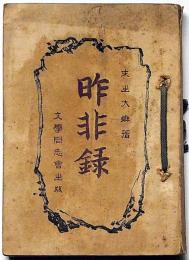 末生大無著
昨非録
文學同志會出版